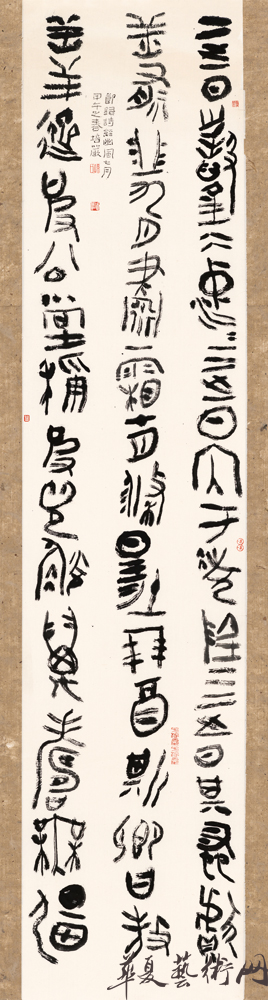 二之日鑿冰沖沖三之日内于凌陰四之日其蚤獻
羔祭韭九月肅霜十月滌場朋酒斯饗曰殺
羔羊躋彼公堂稱彼兕觥萬壽無疆
詩經豳風七月
甲午之春
華夏藝術网